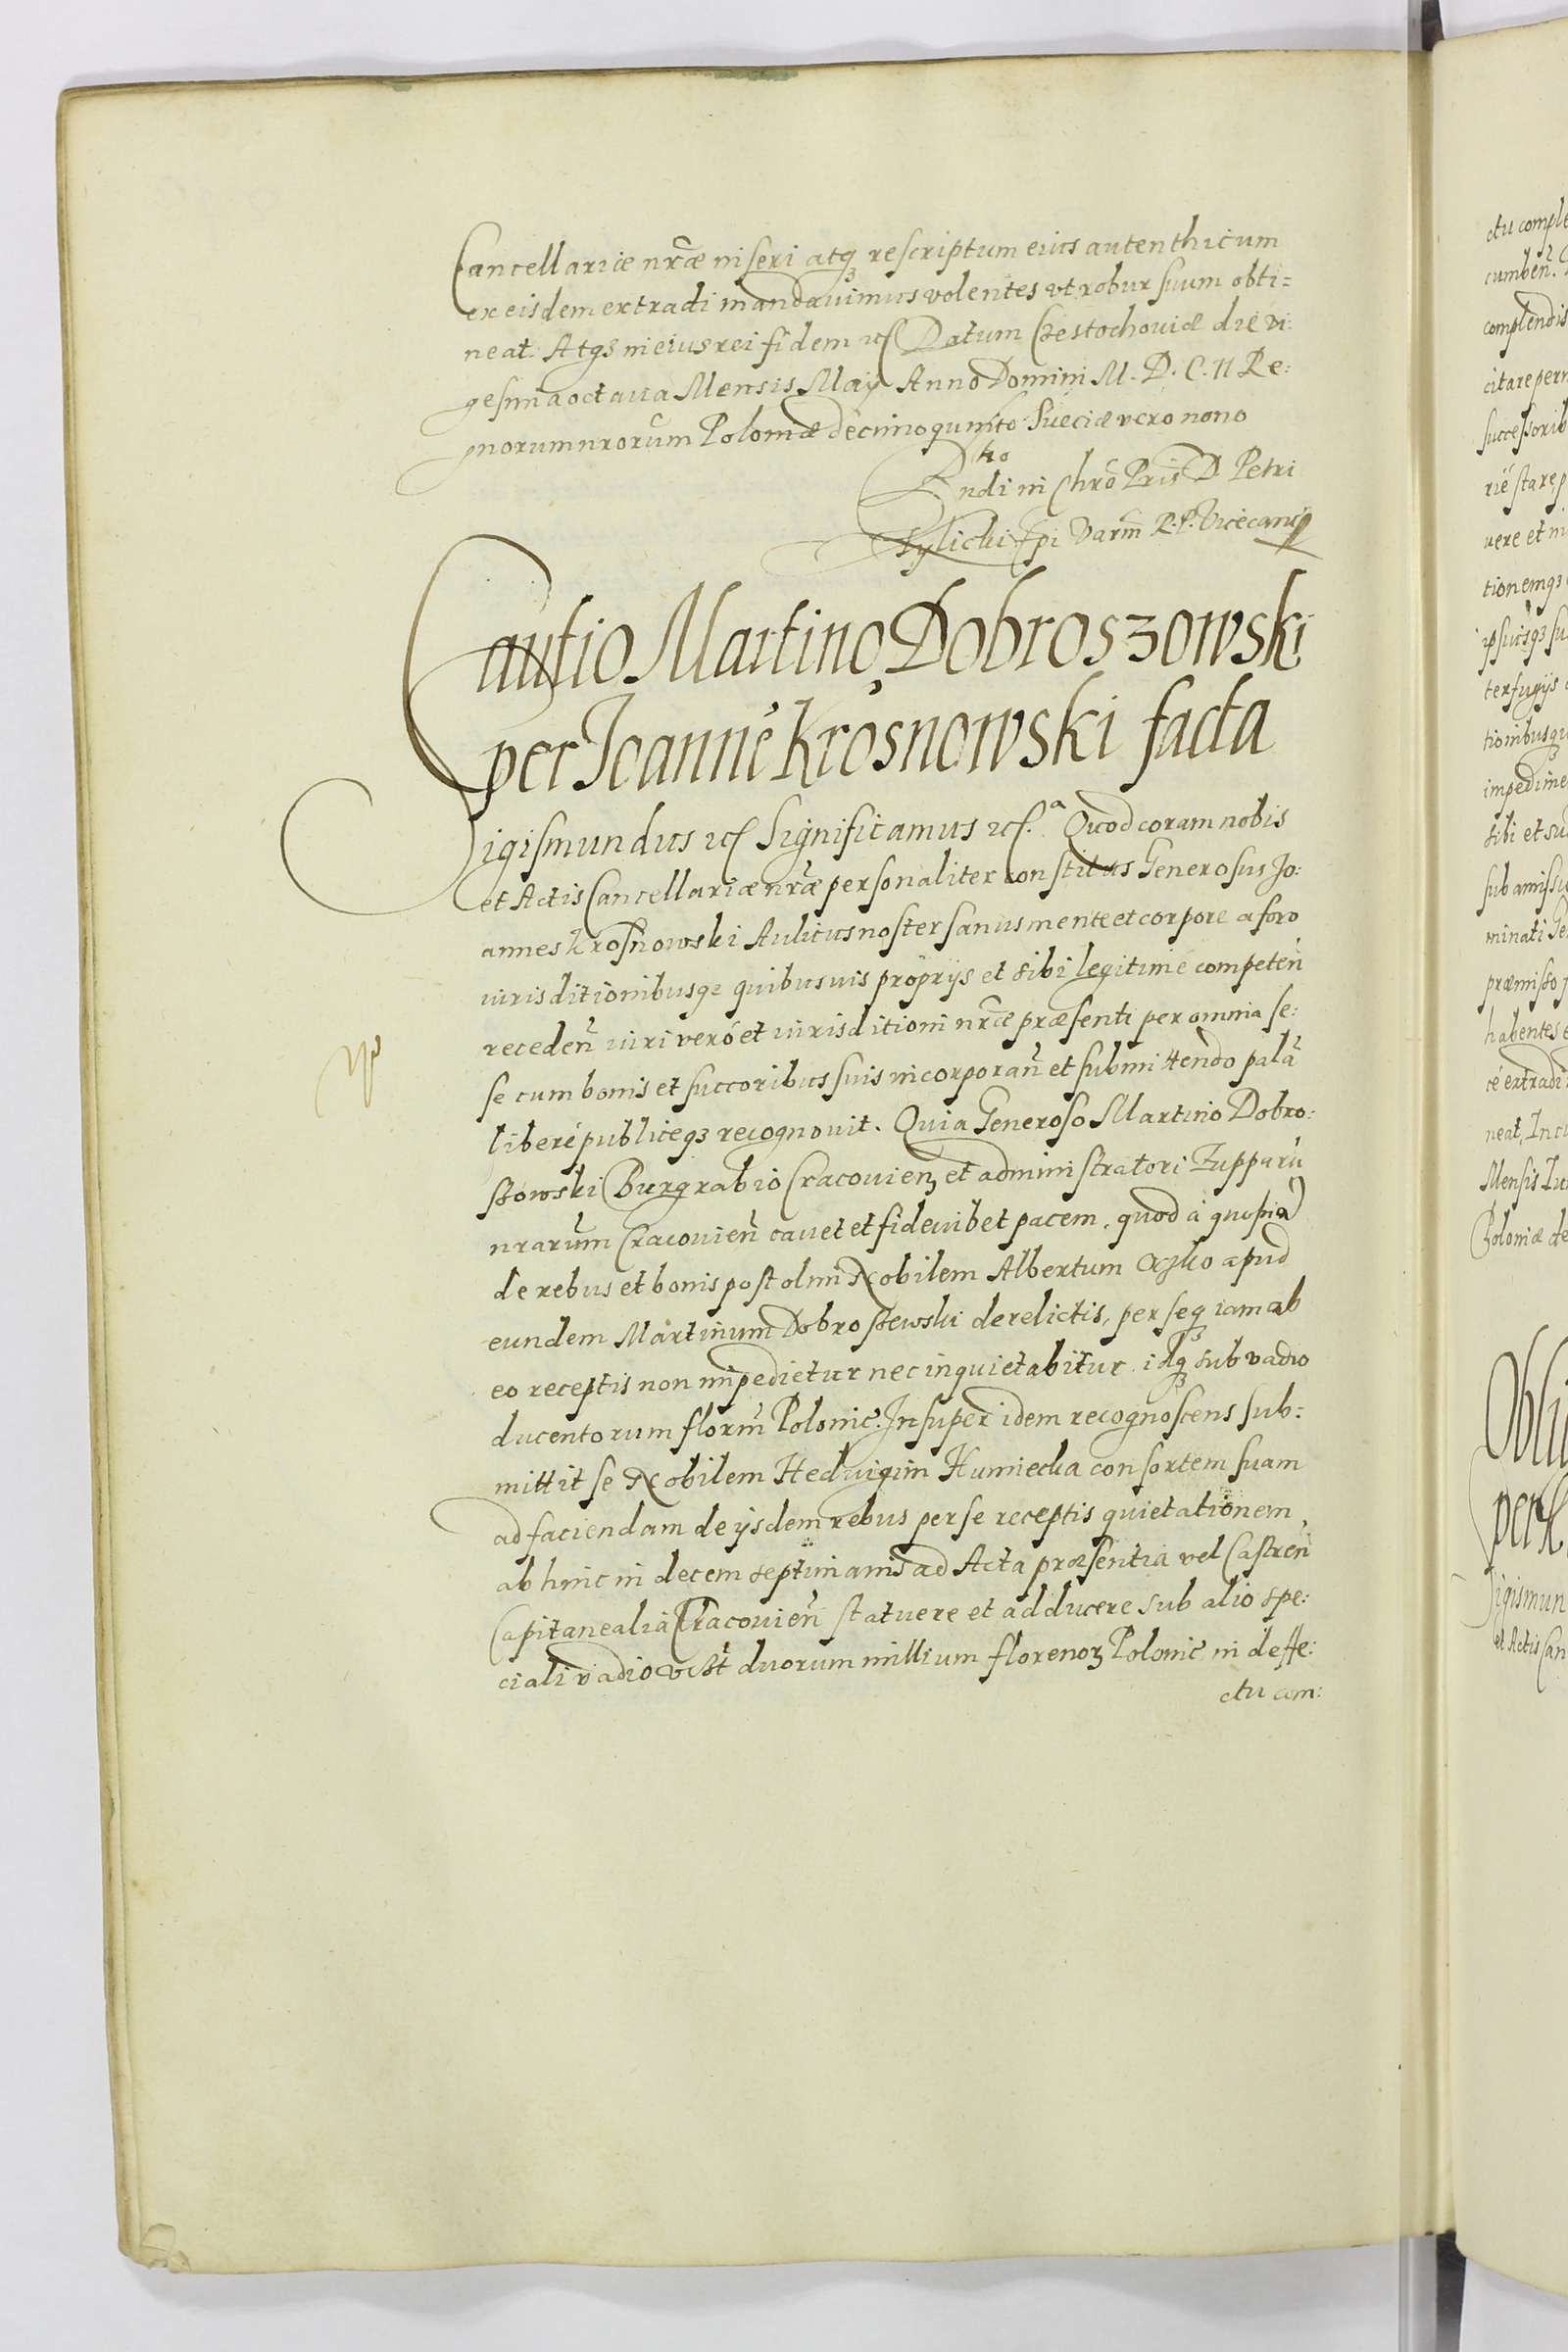 Cancellariæ nr̃æ inseri atq₃ rescriptum eius autenthicum
ex eisdem extradi mandavimus volentes vt robur suum obti=
neat. Atq₃ in eius rei fidem etc Datum Czestochouiæ die vi:
gesima octaua Mensis Maij Anno Domini M. D. C. II Re:
gnorum nrorum Poloniæ decimo quinto Sueciæ vero nono
R̃ndi in Chrõ Pris D. Petri
Tylicki Epi Varm R. P. Vicecanc
Cautio Martino Dobroszowski
per Joannẽ Krosnowski facta
Sigismundus etc Significamus etc.ª Quod coram nobis
et Actis Cancellariæ nr̃æ personaliter constitus Generosus Jo:
annes Krosnowski Aulicus noster sanus mente et corpore a foro
iurisditionibusq₃ quibusuis proprijs et sibi legitime competeñ
recedeñ iuri veró et iurisditioni nr̃æ præsenti per omnia se:
se cum bonis et succoribus suis incorporañ et submittendo palã
liberé publiceq₃ recognouit. Quia Generoso Martino Dobro:
szowski Burgrabio Cracouien₃ et administratori Zupparũ
nrarum Cracouieñ cauet et fideiubet pacem. quod à quopiã
de rebus et bonis post olim Nobilem Albertum apud
eundem Martinum Dobroszewski derelictis, per seq₃ iam ab
eo receptis non impedietur nec inquietabitur idq₃ sub vadio
ducentorum florm̃ Polonic. Insuper idem recognoscens sub:
mittit se Nobilem Hedvigim Humiecka consortem suam
ad faciendam de ijsdem rebus per se receptis quietationem,
ab hinc in decem septimanis ad Acta præsentia vel Castreñ
Capitanealia Cracouieñ statuere et adducere sub alio spe:
ciali vadio duorum millium florenor₃ Polonic in deffe:
ctu com: